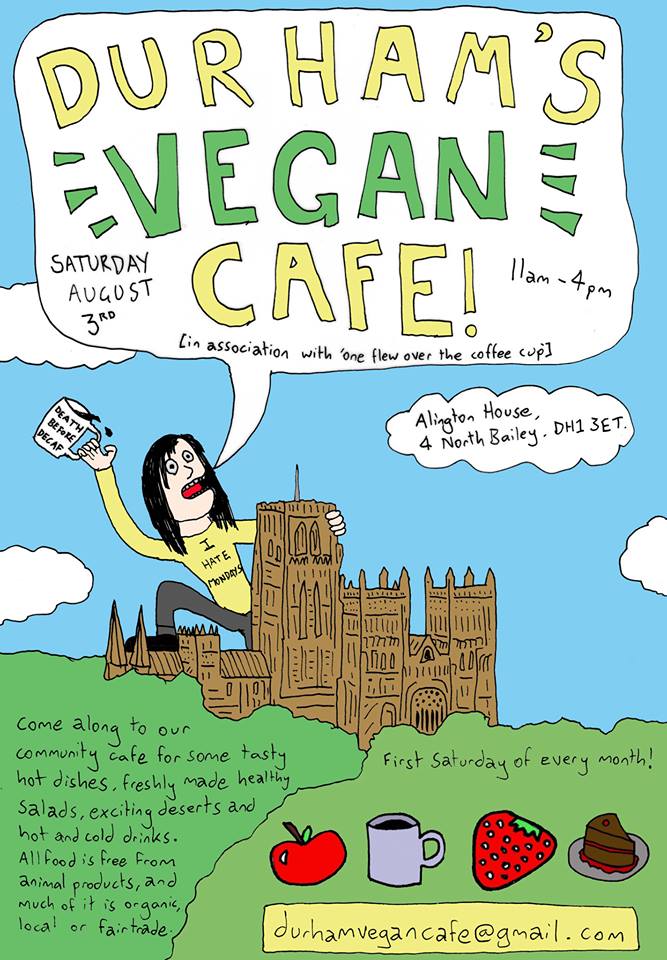 DURHAM'S
VEGAN
CAFE!
SATURDAY
AUGUST
3RD
11am - 4pm
[in association with 'one flew over the coffee cup']
Alington House,
4 North Bailey. DH1 3ET.
DEATH
BEFORE
DECAF
I
HATE
MONDAYS
Come along to our
community cafe for some tasty
hot dishes, freshly made healthy
salads, exciting deserts and
hot and cold drinks.
All food is free from
animal products, and
much of it is organic,
local or fairtrade.
First Saturday of every month!
durhamvegancafe@gmail.com